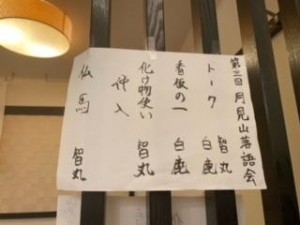 第三回 月見山落語会
トーク 智丸 白鹿
看板の一 白鹿
化け物使い 智丸
仲入
仏馬 智丸